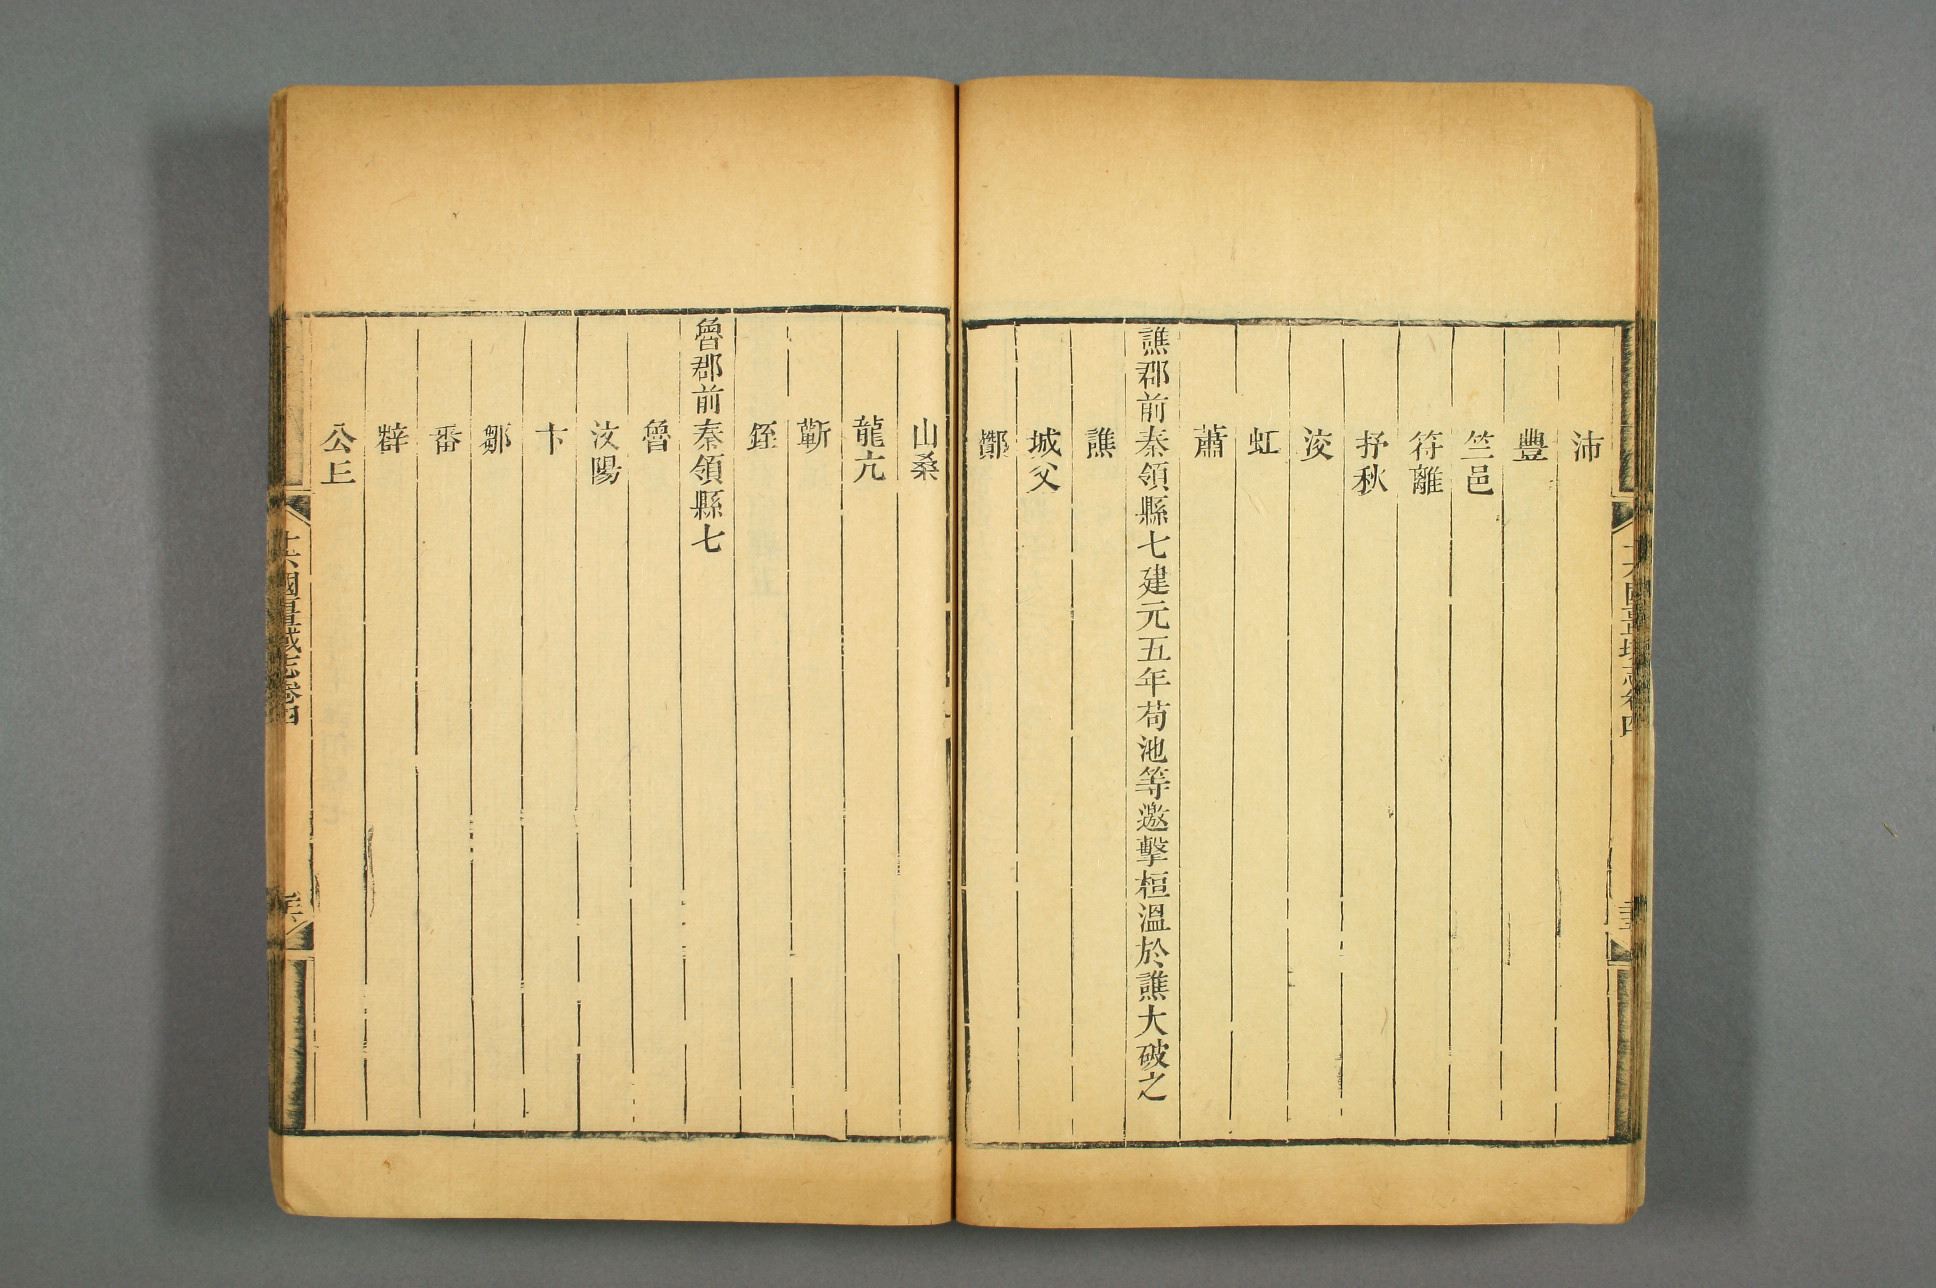 沛
豐
竺邑
符離
抒秋
洨
虹
蕭
譙郡前秦領縣七建元五年苟池等邀擊桓溫於譙大破之
譙
城父
酇
山桑
龍亢
蘄
銍
魯郡前秦領縣七
魯
汶陽
卞
鄒
番
薛
公丘
十六國疆域志卷四
十六國疆域志卷四